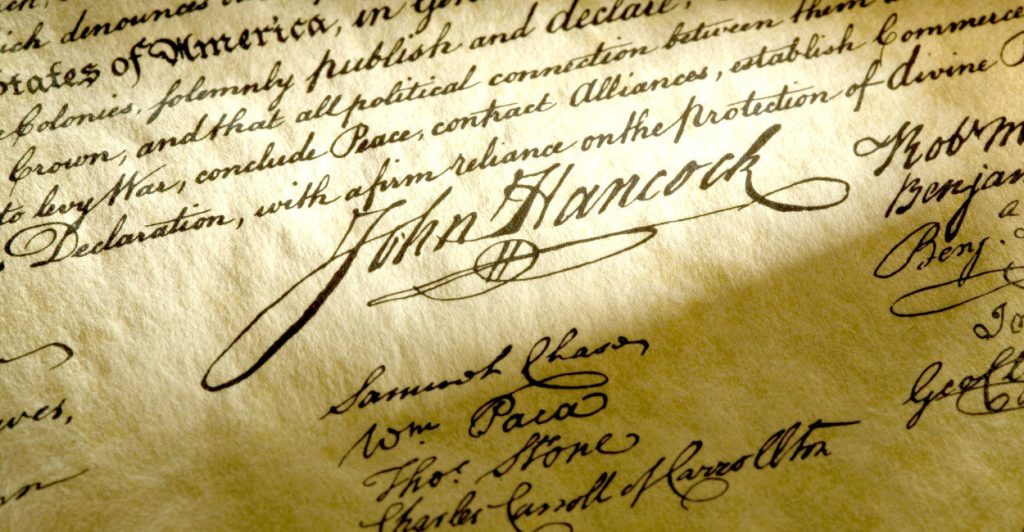 ich denounces
States of America, in
Colonies, solemnly publish and declare,
Crown, and that all political connection between them
to levy War, conclude Peace, contract Alliances, establish Commerce
Declaration, with a firm reliance on the protection of divine
John Hancock
Samuel Chase
Wm. Paca
Thos. Stone
Charles Carroll of Carrollton
Rob M
Benjam
Benj.